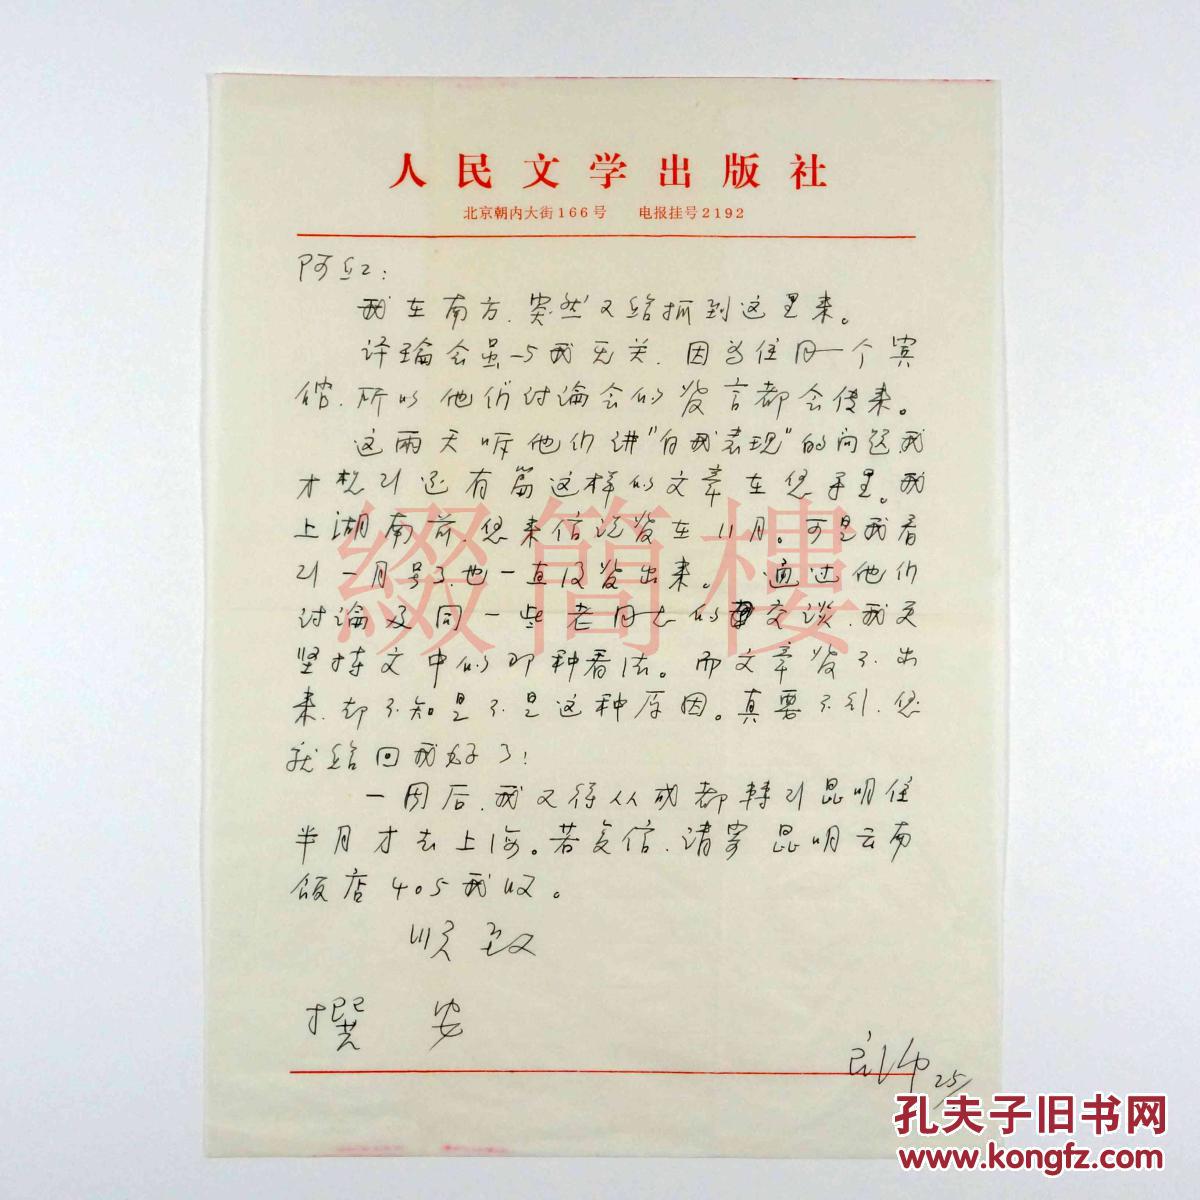 人民文学出版社
北京朝内大街166号 电报挂号2192
阿红：
我在南方、突然又给抓到这里来。
评论会虽与我无关、因为住同一个宾
馆、所以他们讨论会的发言都会传来。
这两天听他们讲"自我表现"的问题我
才想到还有篇这样的文章在您手里。我
上湖南前、您来信说发在11月。可是我看
到一月号了、也一直没发出来。通过他们
讨论及同一些老同志的交谈、我更
坚持文中的那种看法。而文章发不出
来、却不知是不是这种原因。真要不行、您
就给回我好了！
一周后、我又得从成都转到昆明住
半月才去上海。若复信、请寄昆明云南
饭店405我收。
顺致
撰安
25/
綴簡樓
孔夫子旧书网
www.kongfz.com